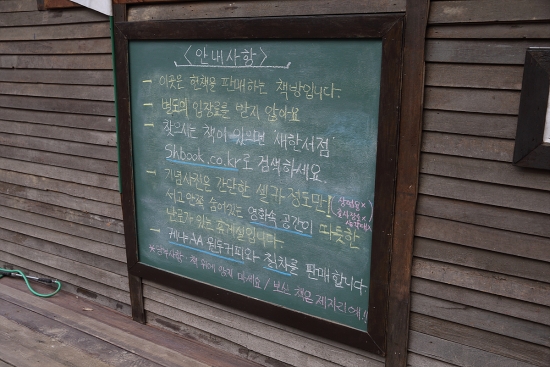 <안내사항>
- 이곳은 헌책을 판매하는 책방입니다.
- 별도의 입장료를 받지 않아요
- 찾으시는 책이 있으면 '새한서점'
Shbook.co.kr로 검색하세요.
- 기념사진은 간단한 셀카 정도만!
서고 안쪽 숨어있는 영화속 공간이 따뜻한
난로가 있는 휴게실입니다.
- 케냐AA 원두커피와 차를 판매합니다
책 위에 앉지 마세요 / 보신 책은 제자리에!!